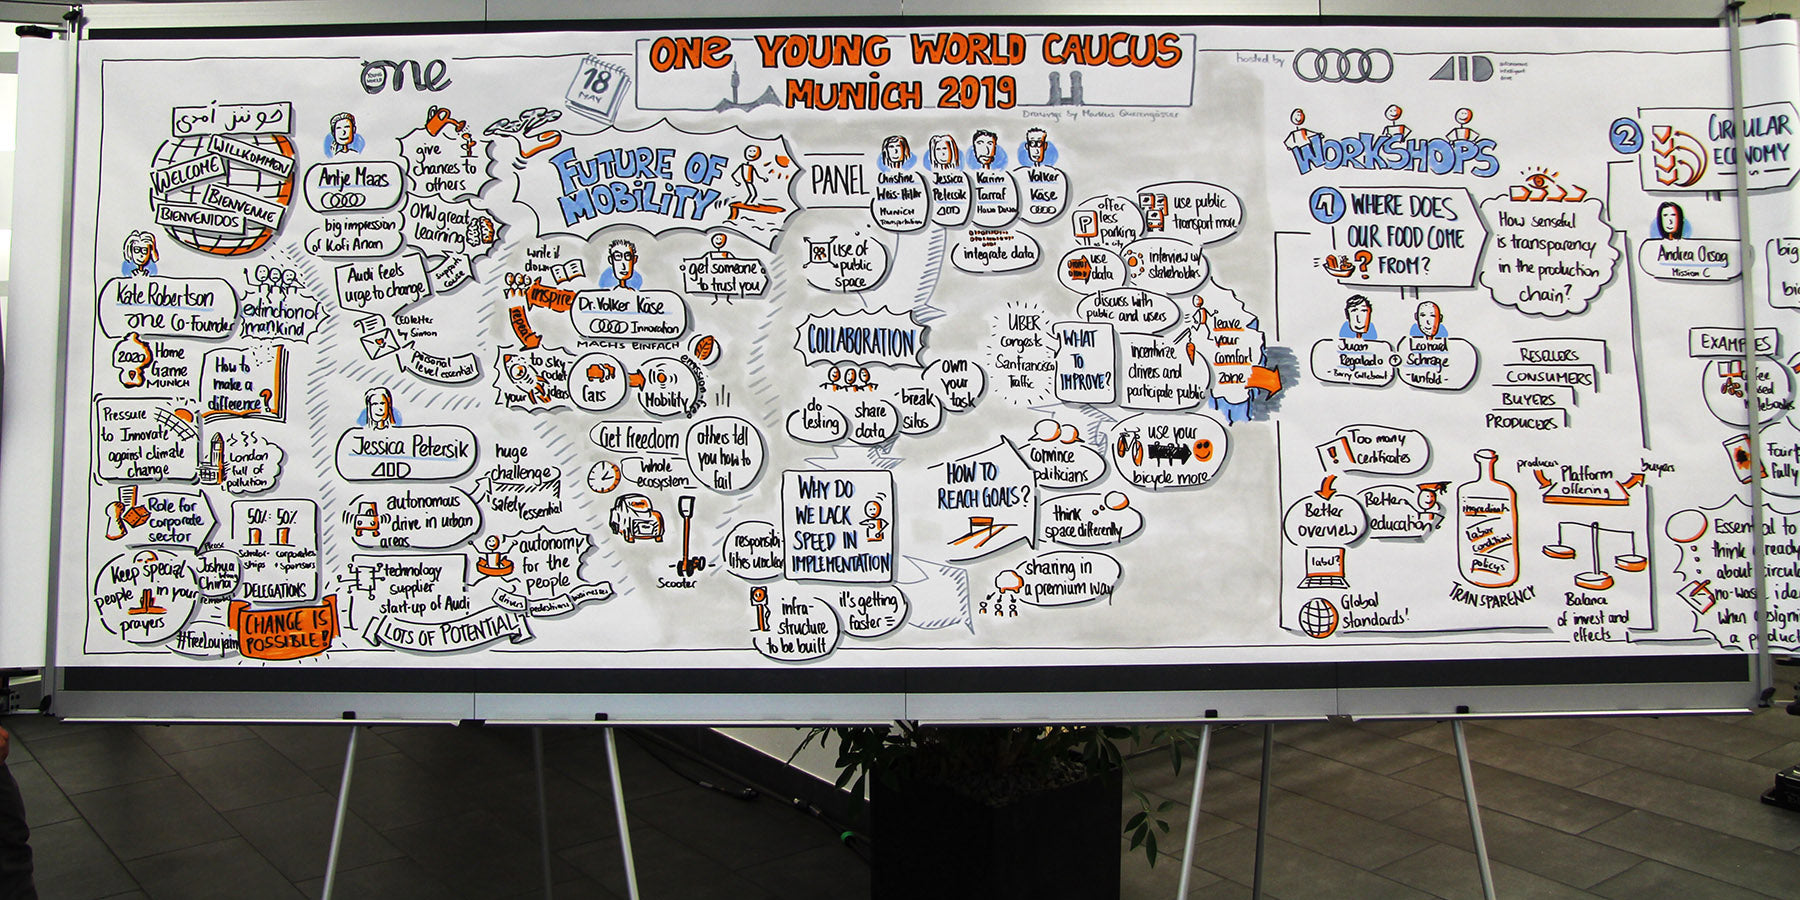 ONE YOUNG WORLD CAUCUS
MUNICH 2019
18
MAY
Drawings by Markus Querengässer
hosted by
AID
one
خوش آمدی
WILLKOMMEN
WELCOME
BIENVENUE
BIENVENIDOS
Kate Robertson
one Co-Founder
extinction of
mankind
2020
Home
Game
MUNICH
How to
make a
difference?
Pressure
to Innovate
against climate
change
London
full of
pollution
Role for
corporate
sector
50% : 50%
Scholar-
ships
corporates
+ sponsors
DELEGATIONS
Please
Keep special
people in your
prayers
Joshua
Wong
China
#FreeLoujain
CHANGE IS
POSSIBLE!
Antje Maas
give
chances to
others
big impression
of Kofi Anan
OYW great
learning
Audi feels
urge to change
support
cause
CEO letter
by Simon
personal
level essential
Jessica Petersik
AID
huge
challenge
safety essential
autonomous
drive in urban
areas
technology
supplier
start-up of Audi
autonomy
for the
people
drivers
pedestrians
businesses
LOTS OF POTENTIAL!
FUTURE OF
MOBILITY
write it
down
inspire
repeat
Dr. Volker Käse
Innovation
MACHS EINFACH
get someone
to trust you
to sky
rocket
your ideas
Cars
Mobility
emission-free
Get freedom
whole
ecosystem
others tell
you how to
fail
Scooter
PANEL
Christine
Weis-Hiller
MUNICH
Transportation
Jessica
Petersik
AID
Karim
Tarraf
Hawa Dawa
Volker
Käse
use of
public
space
integrate data
COLLABORATION
do
testing
share
data
break
silos
own
your
task
WHY DO
WE LACK
SPEED IN
IMPLEMENTATION
responsibi-
lities unclear
infra-
structure
to be built
it's getting
faster
offer
less
parking
in city
P
use public
transport more
use
data
interview w/
stakeholders
discuss with
public and users
UBER
congests
San Francisco
Traffic
WHAT
TO
IMPROVE?
incentivize
drivers and
participate public
leave
your
comfort
zone
HOW TO
REACH GOALS?
convince
politicians
use your
bicycle more
think
space differently
sharing in
a premium way
WORKSHOPS
1
WHERE DOES
OUR FOOD COME
FROM?
How senseful
is transparency
in the production
chain?
Juan
Regalado
Leonard
Schrage
-unfold-
RESELLERS
CONSUMERS
BUYERS
PRODUCERS
Too many
certificates
Better
overview
Better
education
label?
Global
standards!
ingredients
labor
conditions
policys
TRANSPARENCY
producer
Platform
offering
buyers
Balance
of invest and
effects
2
CIRCULAR
ECONOMY
Andrea Orsag
Mission C
big
EXAMPLES
Essential to
think
already
about circul
no-waste
idea
when
designi
a product